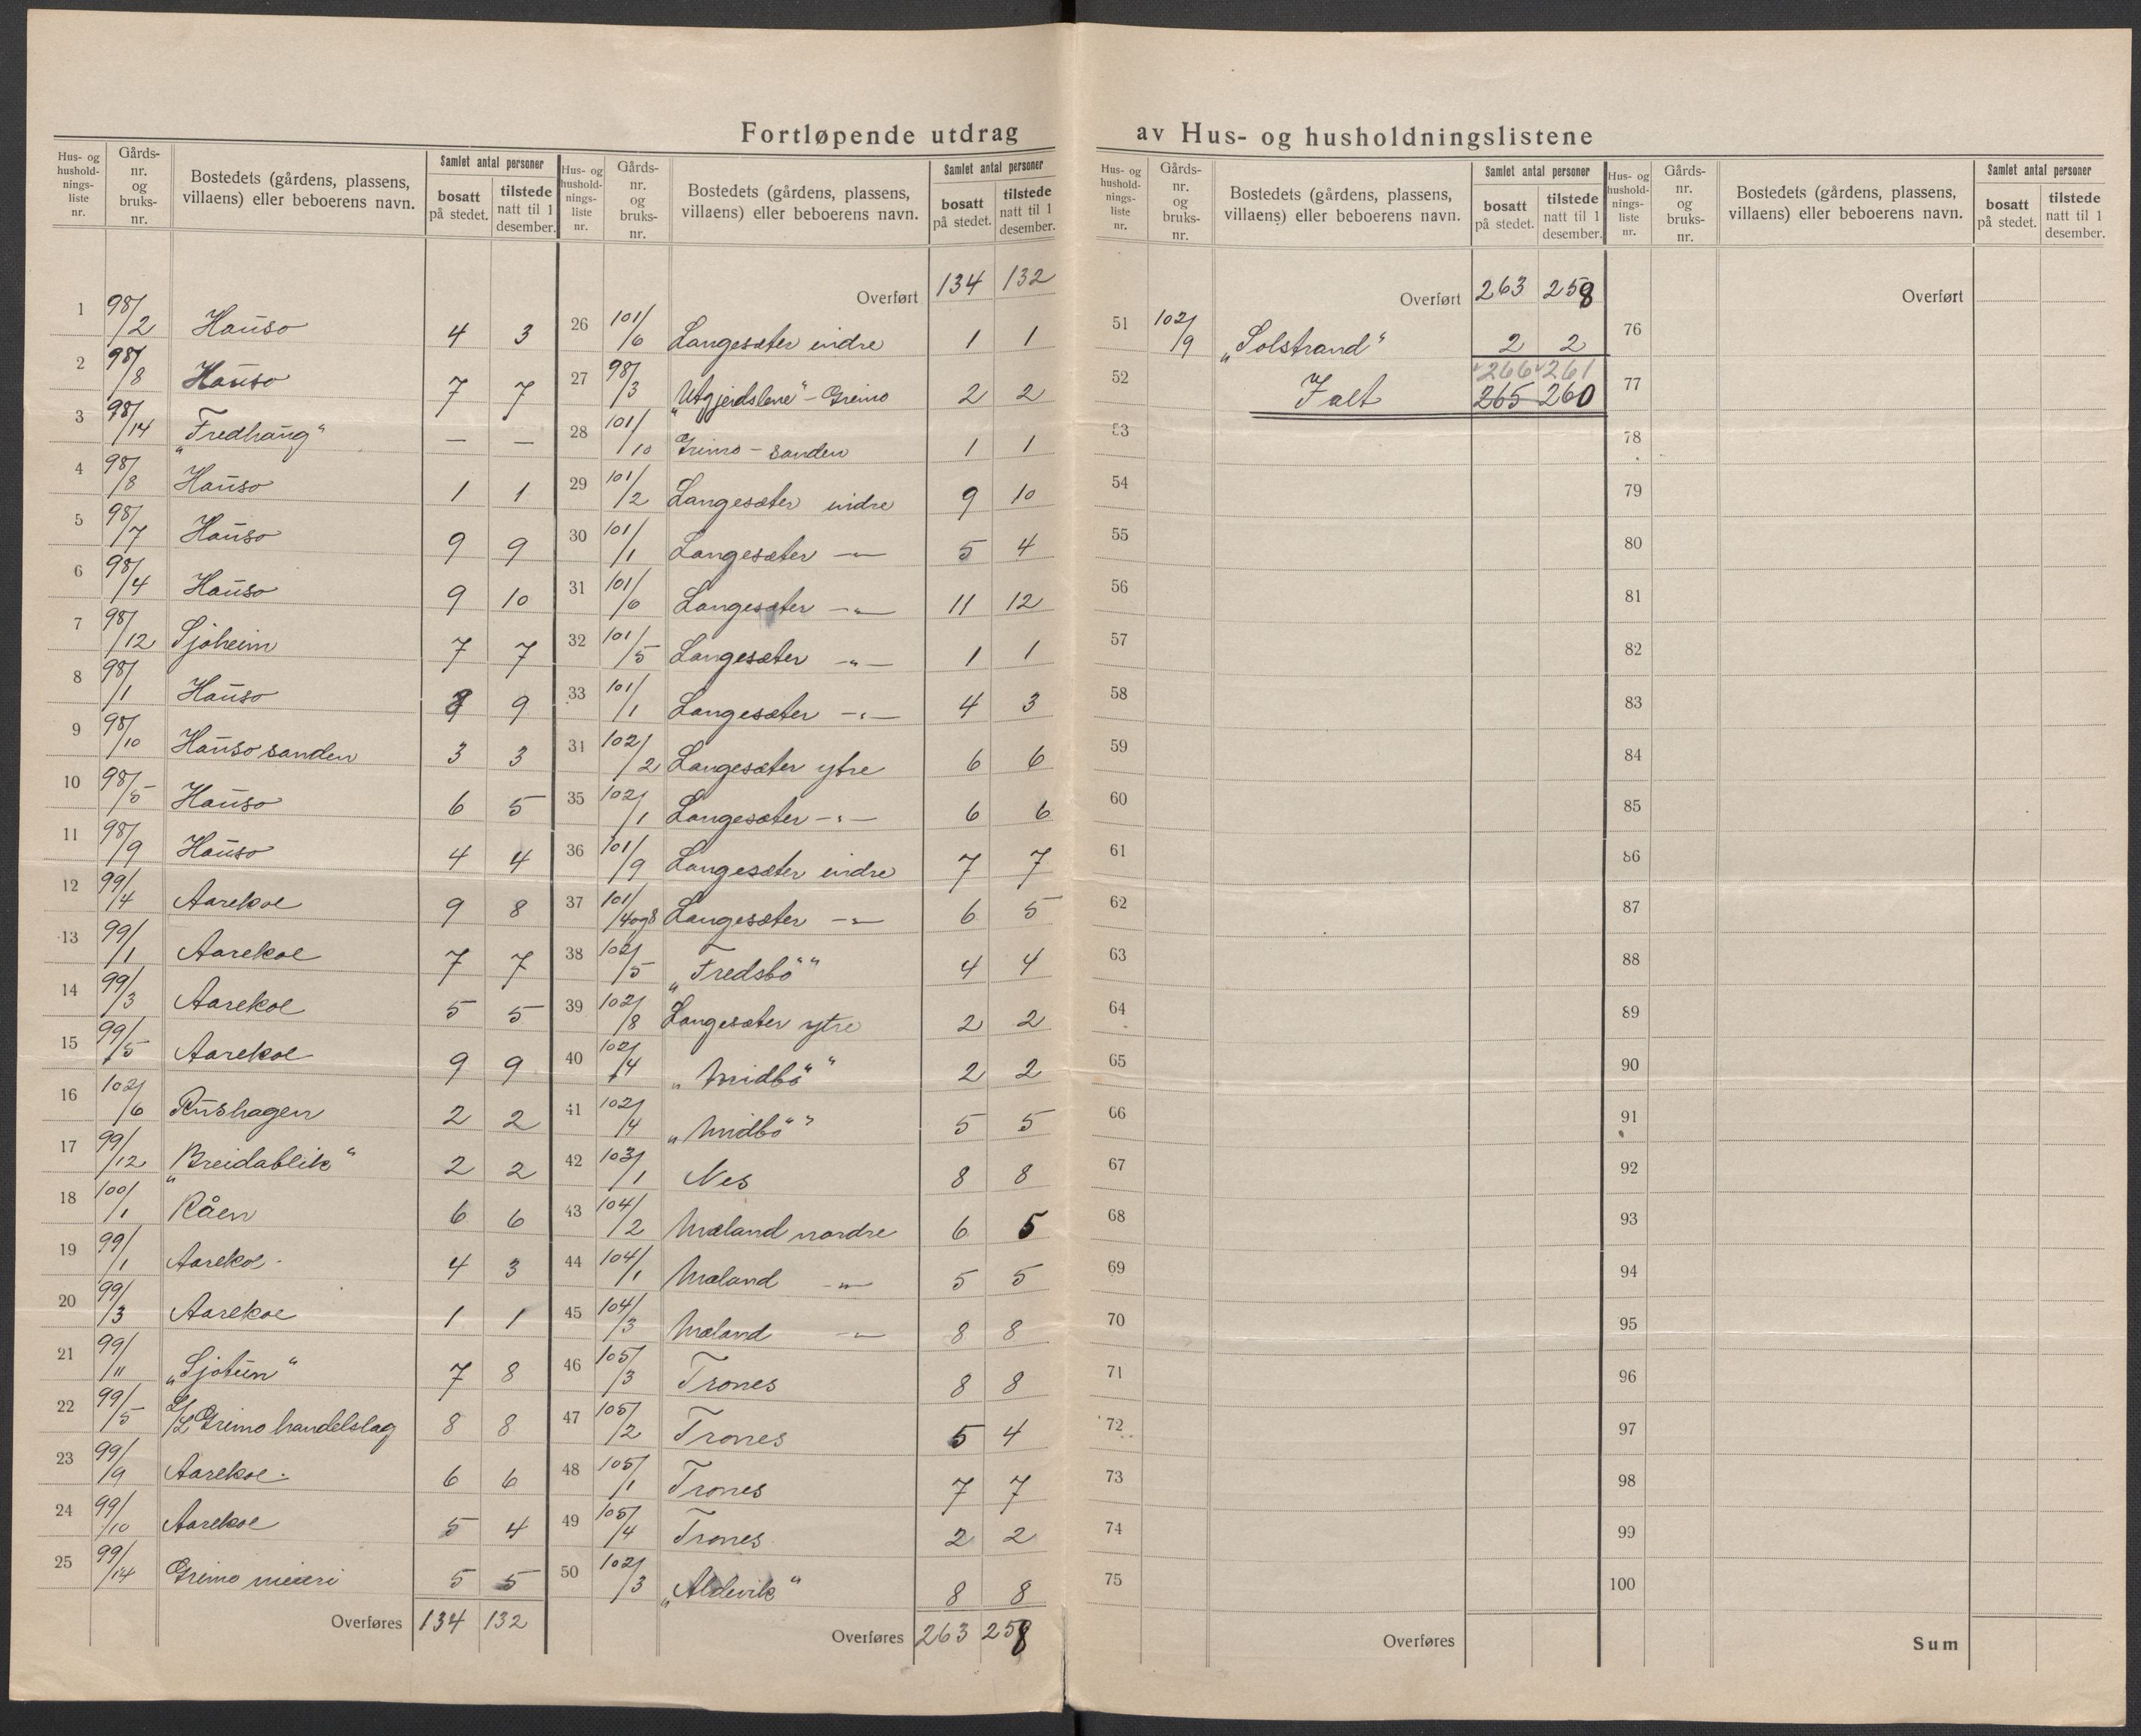 Fortløpende utdrag av Hus- og husholdningslistene
Hus- og husholdnings-liste nr. | Gårds-nr. og bruks-nr. | Bostedets (gårdens, plassens, villaens) eller beboerens navn. | Samlet antal personer bosatt på stedet. | tilstede natt til 1 desember.
1 98/2 Hauso 4 3
2 98/8 Hauso 7 7
3 98/14 „Fredhaug“ — —
4 98/8 Hauso 1 1
5 98/7 Hauso 9 9
6 98/4 Hauso 9 10
7 98/12 Sjøheim 7 7
8 98/1 Hauso 9
9 98/10 Hauso sanden 3 3
10 98/5 Hauso 6 5
11 98/9 Hauso 4 4
12 99/4 Aarekol 9 8
13 99/1 Aarekol 7 7
14 99/3 Aarekol 5 5
15 99/5 Aarekol 9 9
16 102/6 Rushagen 2 2
17 99/12 „Breidablik“ 2 2
18 100/1 Råen 6 6
19 99/1 Aarekol 4 3
20 99/3 Aarekol 1 1
21 99/11 „Sjotun“ 7 8
22 99/5 Grimo handelslag 8 8
23 99/9 Aarekol 6 6
24 99/10 Aarekol 5 4
25 99/14 Grimo meieri 5 5
Overføres 134 132
Hus- og husholdnings-liste nr. | Gårds-nr. og bruks-nr. | Bostedets (gårdens, plassens, villaens) eller beboerens navn. | Samlet antal personer bosatt på stedet. | tilstede natt til 1 desember.
Overført 134 132
26 101/6 Langesæter indre 1 1
27 98/3 „Utgjerdslene“ - Grimo 2 2
28 101/10 Grimo - sanden 1 1
29 101/2 Langesæter indre 9 10
30 101/1 Langesæter —„— 5 4
31 101/6 Langesæter —„— 11 12
32 101/5 Langesæter —„— 1 1
33 101/1 Langesæter —„— 4 3
34 102/2 Langesæter ytre 6 6
35 102/1 Langesæter —„— 6 6
36 101/9 Langesæter indre 7 7
37 101/4 og 8 Langesæter —„— 6 5
38 102/5 „Fredsbö“ 4 4
39 102/8 Langesæter ytre 2 2
40 102/4 „Midbö“ 2 2
41 102/4 „Midbö“ 5 5
42 103/1 Nes 8 8
43 104/2 Mæland nordre 6 5
44 104/1 Mæland —„— 5 5
45 104/3 Mæland —„— 8 8
46 105/3 Trones 8 8
47 105/2 Trones 5 4
48 105/1 Trones 7 7
49 105/4 Trones 2 2
50 102/3 „Aldevik“ 8 8
Overføres 263 258
Hus- og husholdnings-liste nr. | Gårds-nr. og bruks-nr. | Bostedets (gårdens, plassens, villaens) eller beboerens navn. | Samlet antal personer bosatt på stedet. | tilstede natt til 1 desember.
Overført 263 258
51 102/9 „Solstrand“ 2 2
266 261
52 I alt 265 260
53
54
55
56
57
58
59
60
61
62
63
64
65
66
67
68
69
70
71
72
73
74
75
Overføres
Hus- og husholdnings-liste nr. | Gårds-nr. og bruks-nr. | Bostedets (gårdens, plassens, villaens) eller beboerens navn. | Samlet antal personer bosatt på stedet. | tilstede natt til 1 desember.
Overført
76
77
78
79
80
81
82
83
84
85
86
87
88
89
90
91
92
93
94
95
96
97
98
99
100
Sum